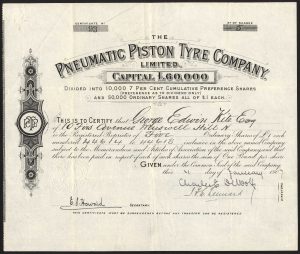 CERTIFICATE Nº
Nº OF SHARES
THE
PNEUMATIC PISTON TYRE COMPANY,
LIMITED.
CAPITAL £60,000
DIVIDED INTO 10,000 7 PER CENT CUMULATIVE PREFERENCE SHARES
(PREFERENCE AS TO DIVIDEND ONLY)
AND 50,000 ORDINARY SHARES ALL OF £1 EACH.
THIS IS TO CERTIFY that George Edwin Kite Esq
of 10 Firs Avenue Muswell Hill N.
is the Registered Proprietor of Five Ordinary Shares of £1 each
numbered to inclusive in the above named Company
subject to the Memorandum and Articles of Association of the said Company and that
there has been paid in respect of each share the sum of One Pound per share
GIVEN under the Common Seal of the said Company
this day of January 1907
E. S. Howard
SECRETARY.
THIS CERTIFICATE MUST BE SURRENDERED BEFORE ANY TRANSFER CAN BE REGISTERED